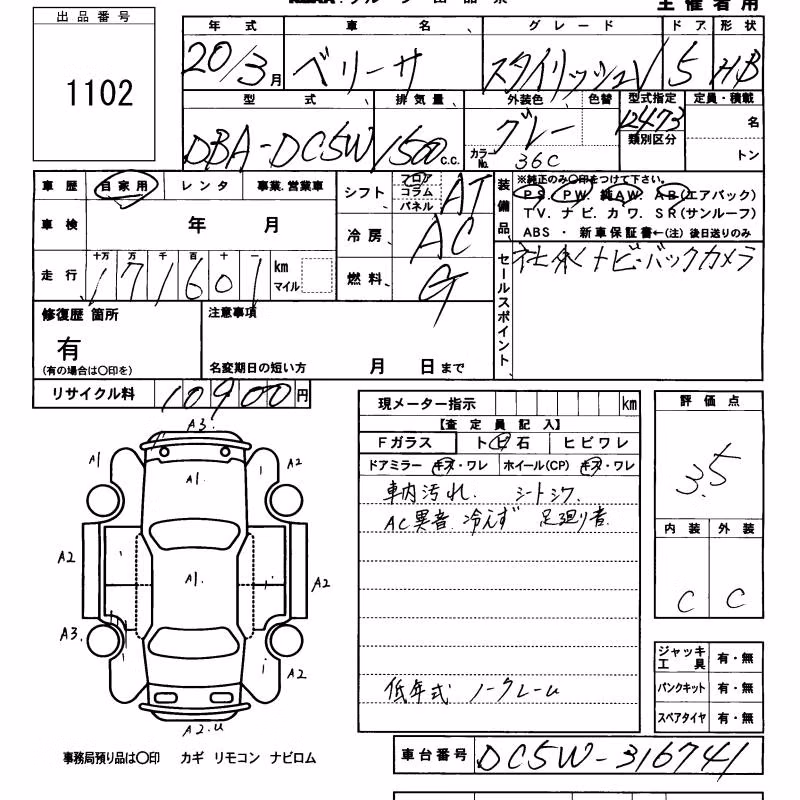 出品番号
1102
主催者用
年式 車名 グレード ドア 形状
20/3月 ベリーサ スタイリッシュV 5 HB
型式 排気量 外装色 色替 型式指定 定員・積載
DBA-DC5W 1500c.c. グレー 12473 名
カラーNo. 36C 類別区分 トン
車歴 自家用 レンタ 事業.営業車
シフト フロア コラム パネル AT
装備品 ※純正のみ〇印をつけて下さい。
PS. PW. 純AW. AB(エアバック)
TV. ナビ. カワ. SR(サンルーフ)
ABS ・ 新車保証書←(注) 後日送りのみ
車検 年 月
冷房 AC
走行 十万 万 千 百 十 一
171601 km マイル
燃料 G
セールスポイント
社外ナビ・バックカメラ
修復歴 箇所
有
(有の場合は〇印を)
注意事項
名変期日の短い方 月 日まで
リサイクル料 10900円
現メーター指示 km
【査定員記入】
Fガラス トビ石 ヒビワレ
ドアミラー キズ・ワレ ホイール(CP) キズ・ワレ
車内汚れ. シートシワ.
AC異音.冷えず 足廻り音.
低年式 ノークレーム
評価点
3.5
内装 外装
C C
ジャッキ工具 有・無
パンクキット 有・無
スペアタイヤ 有・無
A3.
A1 A2
A1.
A2 A1. A2
A3. A2
A2.U
事務局預り品は〇印 カギ リモコン ナビロム
車台番号 DC5W-316741